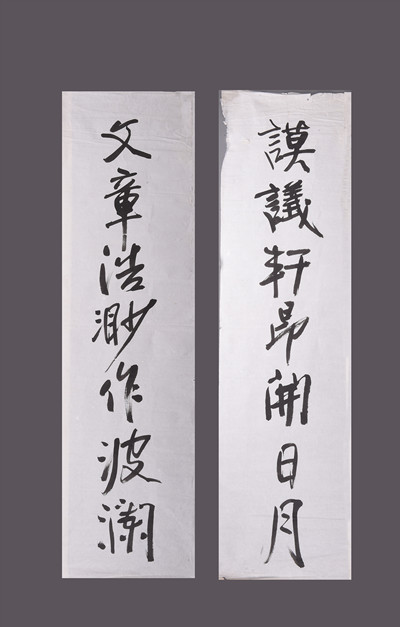 謨議軒昂開日月
文章浩渺作波瀾